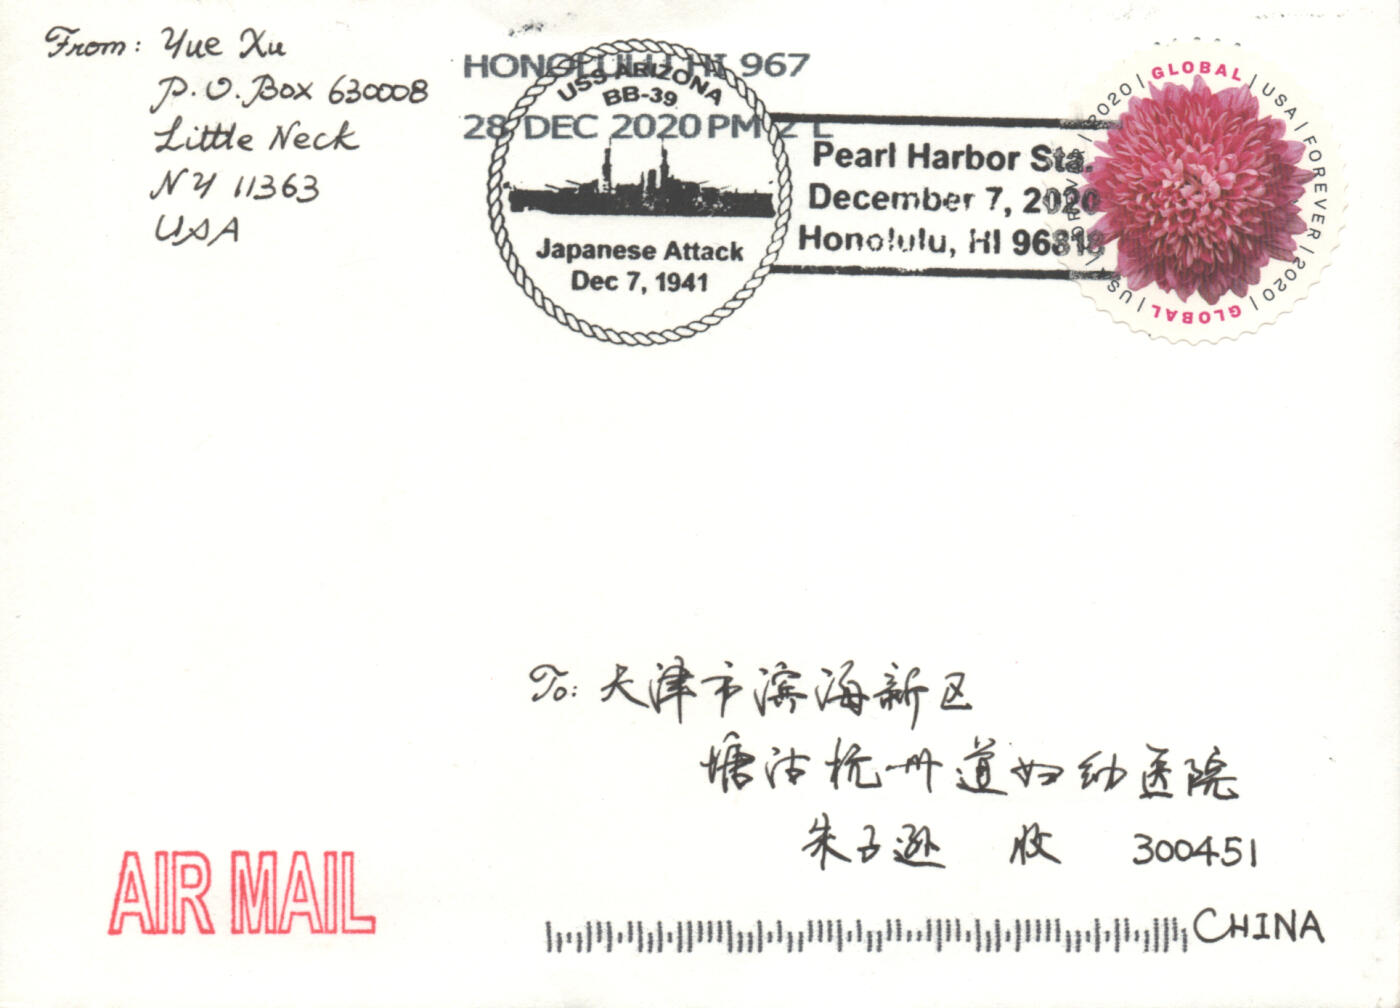 From: Yue Xu
P.O. Box 630008
Little Neck
NY 11363
USA
HONOLULU HI 967
28 DEC 2020 PM 2 L
USS ARIZONA
BB-39
Japanese Attack
Dec 7, 1941
Pearl Harbor Sta.
December 7, 2020
Honolulu, HI 96818
GLOBAL | USA | FOREVER | 2020 | GLOBAL | USA | FOREVER | 2020 |
To: 天津市滨海新区
塘沽杭州道妇幼医院
朱子逊 收 300451
CHINA
AIR MAIL